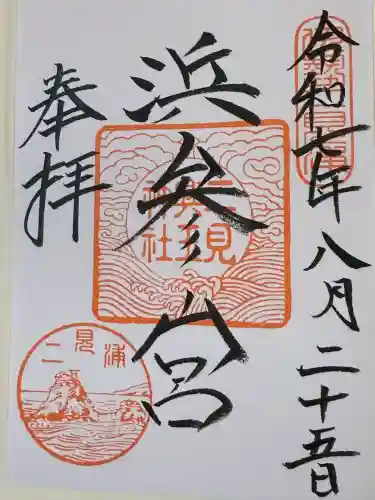 令和七年八月二十五日
浜参宮
奉拝
二見興玉神社
二見浦